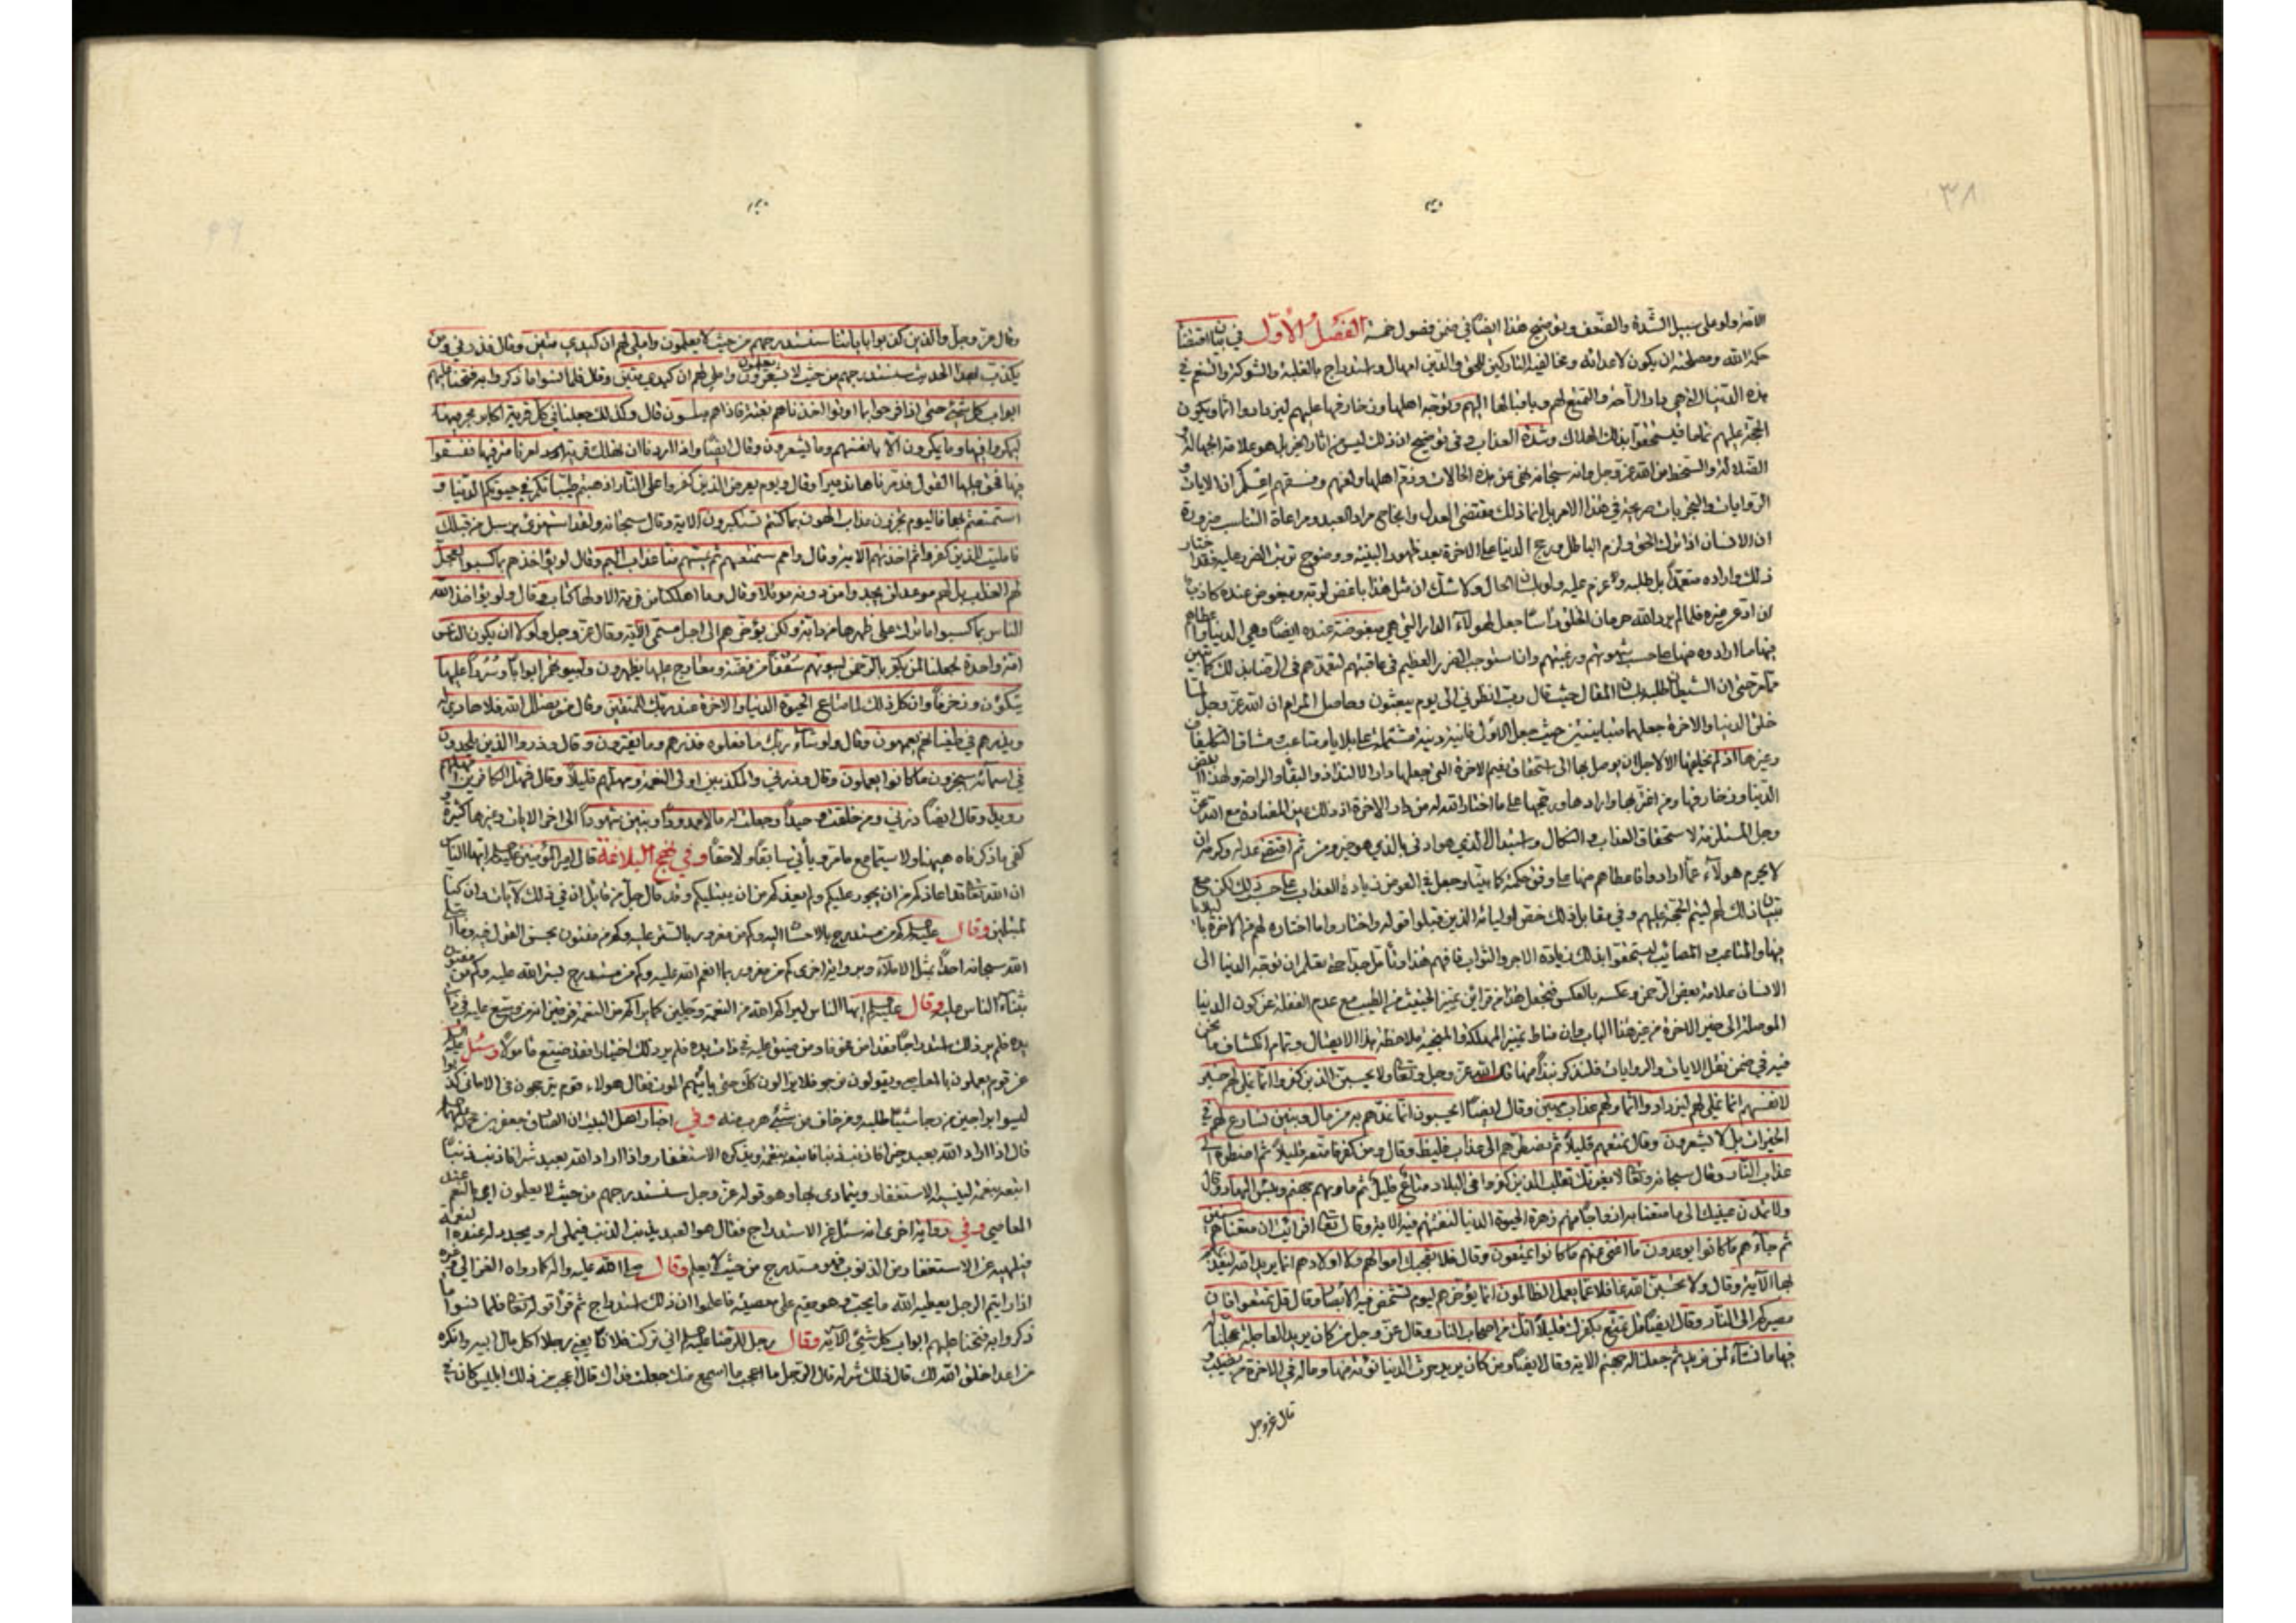 ٣٨
الآخرة ولو على سبيل الشدة والضعف وتوضيح هذا ايضا في ضمن فصول خمسة الفصل الاول في بيان اقتضاء
حكمة الله ومصلحته ان يكون لاعدائه ومخالفيه التاركين للحق والدين امهال واستدراج بالغلبة والشوكة والتنعم في
هذه الدنيا التي هي دار الآخرة والتمتع لهم وباقبالها اليهم وتوجه اهلها وزخارفها عليهم ليزدادوا اثما ويكون
الحجة عليهم تماما فيستحقوا بذلك الهلاك وشدة العذاب وفي توضيح ان ذلك ليس من اثار الخير بل هو علامة الجهالة
الضلالة والسخط من الله عز وجل وانه سبحانه نهى عن هذه الحالات وذم اهلها ولعنهم وفسقهم اعلم ان الايات و
الروايات والتجربيات صريحة في هذا الامر بل انما ذلك مقتضى العدل وانجاح مراد العبد ومراعاة التناسب ضرورة
ان الانسان اذا ترك الحق ولزم الباطل ورجح الدنيا على الاخرة بعد ظهور البينة ووضوح ترتب الضرر عليه فقد اختار
ذلك واراده متعمدا بل طلبه وعزم عليه ولو بلسان الحال ولا شك ان مثل هذا باغض لربه ومبغوض عنده كاذب
ان ادعى غيره فلما لم يرد الله حرمان الخلق راسا جعل لهؤلاء الدار التي هي مبغوضة عنده ايضا وهي الدنيا واعطاهم
فيها ما ارادوه منها على حسب شهوتهم ورغبتهم وان استوجب الضرر العظيم في عاقبتهم لتعمدهم في الرضا بذلك كما تبين
مما مر حتى ان الشيطان طلبه بلسان المقال حيث قال رب انظرني الى يوم يبعثون وحاصل المرام ان الله عز وجل لما
خلق الدنيا والاخرة جعلهما متباينتين حيث جعل الاولى فانية دنية مشتملة على بلايا ومتاعب ومشاق التكليفات
وغيرها اذ لم يخلقها الا لاجل ان يوصل بها الى استحقاق نعيم الاخرة التي جعلها دار الالتذاذ والبقاء والراحة ولهذا ابغض
الدنيا وزخارفها ومن اغتر بها وارادها ورجحها على ما اختار الله له من دار الاخرة اذ ذلك عين المضادة مع الله عز
وجل المستلزمة لاستحقاق العذاب والنكال واستبدال الذي هو ادنى بالذي هو خير ومن ثم اقتضى عدله وكرمه ان
لا يحرم هؤلاء عما ارادوا فاعطاهم منها على وفق حكمته كما بينا وجعل في العوض زيادة العذاب على حسب ذلك لكن مع
تبيان ذلك لهم ليتم الحجة عليهم وفي مقابل ذلك خص اوليائه الذين قبلوا قوله واختاروا ما اختاره لهم من الاخرة بالبلايا
فيها والمتاعب والمصائب ليستحقوا بذلك زيادة الاجر والثواب فافهم هذا وتأمل جدا حتى تعلم ان توجه الدنيا الى
الانسان علامة بغض الرحمن وعكسه بالعكس فتجعل هذا من قرائن تميز الخبيث من الطيب مع عدم الغفلة عن كون الدنيا
الموصلة الى خير الاخرة من غير هذا الباب وان مناط تميز المهلكة والمنجية ملاحظة هذا الايصال وتمام انكشاف ما نحن
فيه في ضمن نقل الايات والروايات فلنذكر نبذا منها قال الله عز وجل وتعالى ولا يحسبن الذين كفروا انما نملي لهم خير
لانفسهم انما نملي لهم ليزدادوا اثما ولهم عذاب مهين وقال ايضا ايحسبون انما نمدهم به من مال وبنين نسارع لهم في
الخيرات بل لا يشعرون وقال نمتعهم قليلا ثم نضطرهم الى عذاب غليظ وقال ومن كفر فامتعه قليلا ثم اضطره الى
عذاب النار وقال سبحانه وتعالى لا يغرنك تقلب الذين كفروا في البلاد متاع قليل ثم ماويهم جهنم وبئس المهاد وقال
ولا تمدن عينيك الى ما متعنا به ازواجا منهم زهرة الحيوة الدنيا لنفتنهم فيه الاية وقال تعالى افرأيت ان متعناهم سنين
ثم جاءهم ما كانوا يوعدون ما اغنى عنهم ما كانوا يمتعون وقال فلا تعجبك اموالهم ولا اولادهم انما يريد الله ليعذبهم
بها الآية وقال ولا تحسبن الله غافلا عما يعمل الظالمون انما يؤخرهم ليوم تشخص فيه الابصار وقال قل تمتعوا فان
مصيركم الى النار وقال ايضا قل تمتع بكفرك قليلا انك من اصحاب النار وقال عز وجل من كان يريد العاجلة عجلنا له
فيها ما نشاء لمن نريد ثم جعلنا له جهنم الاية وقال ايضا ومن كان يريد حرث الدنيا نؤته منها وما له في الاخرة من نصيب و
قال عز وجل
وقال عز وجل والذين كذبوا باياتنا سنستدرجهم من حيث لا يعلمون واملي لهم ان كيدي متين وقال فذرني ومن
يكذب بهذا الحديث سنستدرجهم من حيث لا يعلمون واملي لهم ان كيدي متين وقال فلما نسوا ما ذكروا به فتحنا عليهم
ابواب كل شيء حتى اذا فرحوا بما اوتوا اخذناهم بغتة فاذا هم مبلسون قال وكذلك جعلنا في كل قرية اكابر مجرميها
ليمكروا فيها وما يمكرون الا بانفسهم وما يشعرون وقال ايضا واذا اردنا ان نهلك قرية امرنا مترفيها ففسقوا
فيها فحق عليها القول فدمرناها تدميرا وقال ويوم يعرض الذين كفروا على النار اذهبتم طيباتكم في حيوتكم الدنيا و
استمتعتم بها فاليوم تجزون عذاب الهون بما كنتم تستكبرون الاية وقال سبحانه ولقد استهزئ برسل من قبلك
فامليت للذين كفروا ثم اخذتهم الاية وقال وامم سنمتعهم ثم يمسهم منا عذاب اليم وقال لو يؤاخذهم بما كسبوا لعجل
لهم العذاب بل لهم موعد لن يجدوا من دونه موئلا وقال وما اهلكنا من قرية الا ولها كتاب وقال ولو يؤاخذ الله
الناس بما كسبوا ما ترك على ظهرها من دابة ولكن يؤخرهم الى اجل مسمى الآية وقال عز وجل ولولا ان يكون الناس
امة واحدة لجعلنا لمن يكفر بالرحمن لبيوتهم سقفا من فضة ومعارج عليها يظهرون ولبيوتهم ابوابا وسررا عليها
يتكؤن وزخرفا وان كل ذلك لما متاع الحيوة الدنيا والاخرة عند ربك للمتقين وقال من يضلل الله فلا هادي له
ويذرهم في طغيانهم يعمهون وقال ولو شاء ربك ما فعلوه فذرهم وما يفترون وقال وذروا الذين يلحدون
في اسمائه سيجزون ما كانوا يعملون وقال وذرني والمكذبين اولى النعمة ومهلهم قليلا وقال فمهل الكافرين امهلهم
رويدا وقال ايضا ذرني ومن خلقت وحيدا وجعلت له مالا ممدودا وبنين شهودا الى اخر الايات وغيرها كثيرة
كفى ما ذكرناه ههنا ولا سيما مع ما مر ويأتي سابقا ولاحقا وفي نهج البلاغة قال امير المؤمنين عليه السلم ايها الناس
ان الله تعالى قد اعاذكم من ان يجور عليكم ولم يعذكم من ان يبتليكم وقد قال جل من قائل ان في ذلك لآيات وان كنا
لمبتلين وقال عليه السلم كم من مستدرج بالاحسان اليه وكم من مغرور بالستر عليه وكم من مفتون بحسن القول فيه وما ابتلى
الله سبحانه احدا بمثل الاملاء وبرواية اخرى كم من مغرور بما انعم الله عليه وكم من مستدرج بستر الله عليه وكم من مفتون
بثناء الناس عليه وقال عليه السلم ايها الناس ليراكم الله من النعمة وجلين كما يراكم من النقمة فرقين انه من وسع عليه في ذات
يده فلم ير ذلك استدراجا فقد امن مخوفا ومن ضيق عليه في ذات يده فلم ير ذلك اختبارا فقد ضيع مأمولا وسئل عليه السلم
عن قوم يعملون بالمعاصي ويقولون نرجو فلا يزالون كذلك حتى يأتيهم الموت فقال هؤلاء قوم يترجحون في الاماني كذبوا
ليسوا براجين من رجا شيئا طلبه ومن خاف من شيء هرب منه وفي اخبار اهل البيت ان الصادق جعفر بن محمد عليهما السلم
قال اذا اراد الله بعبد خيرا فاذنب ذنبا فاتبعه بنقمة ويذكره الاستغفار واذا اراد الله بعبد شرا فاذنب ذنبا
اتبعه بنعمة لينسيه الاستغفار ويتمادى بها وهو قوله عز وجل سنستدرجهم من حيث لا يعلمون اي بالنعم عند
المعاصي وفي رواية اخرى انه سئل عن الاستدراج فقال هو العبد يذنب الذنب فيملى له ويجدد له عنده النعمة
فيلهيه عن الاستغفار من الذنوب فهو مستدرج من حيث لا يعلم وقال صلى الله عليه واله كما رواه الغزالي وغيره
اذا رايتم الرجل يعطيه الله ما يحب وهو مقيم على معصيته فاعلموا ان ذلك استدراج ثم قرأ قوله تعالى فلما نسوا ما
ذكروا به فتحنا عليهم ابواب كل شيء الآية وقال رجل للرضا عليه السلم اني تركت فلانا يعني رجلا اكل مال
من اعدا خلق الله لك قال ذلك شر له قال الرجل ما اعجب ما اسمع منك جعلت فداك قال اعجب من ذلك ابليس كان في